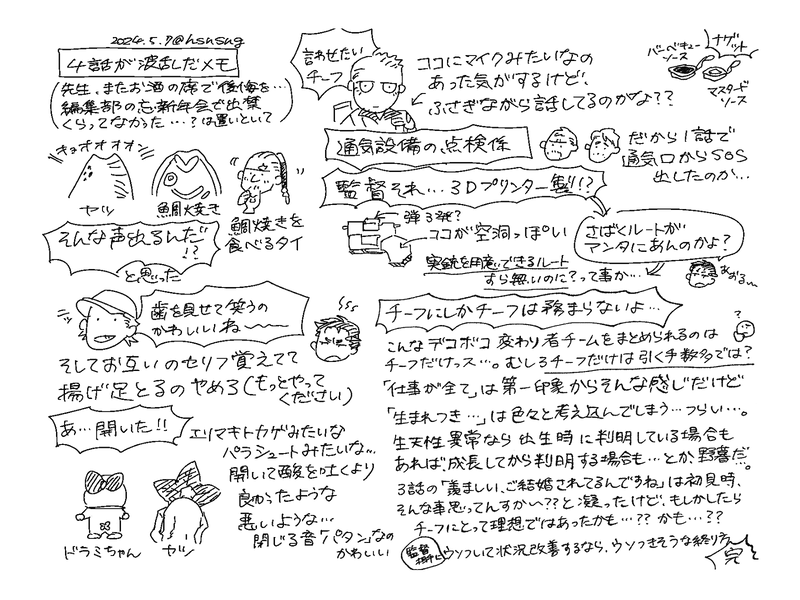 2024.5.9@hsnsng
4話が波乱だメモ
先生、またお酒の席で後悔を…
編集部の忘新年会で出禁
くらってなかった…?は置いといて
キョオオオオン
ヤツ
鯛焼き
鯛焼きを
食べるタイ
そんな声出るんだ!?
と思った
ニッ
歯を見せて笑うの
かわいいね〜〜〜
そしてお互いのセリフ覚えてて
揚げ足とるのやめろ(もっとやって
ください)
あ…開いた!!
エリマキトカゲみたいな
パラシュートみたいな…
開いて酸を吐くより
良かったような
悪いような…
閉じる音「パタン」なの
かわいい
ドラミちゃん
ヤツ
言わせたい
チーフ
ココにマイクみたいなの
あった気がするけど、
ふさぎながら話してるのかな??
バーベキュー
ソース
ナゲット
マスタード
ソース
通気設備の点検係
だから1話で
通気口からSOS
出したのか…
監督それ…3Dプリンター製!?
弾3発?
ココが空洞っぽい
実銃を用意できるルート
すら無いのに?って事か…
さばくルートが
アンタにあんのかよ?
あおる〜
チーフにしかチーフは務まらないよ…
こんなデコボコ変わり者チームをまとめられるのは
チーフだけっス…。むしろチーフだけは引く手数多では?
?
「仕事が全て」は第一印象からそんな感じだけど
「生まれつき…」は色々と考え込んでしまう…つらい…。
先天性異常なら出生時に判明している場合も
あれば、成長してから判明する場合も…とか、野暮だ…。
3話の「羨ましい、ご結婚されてるんですね」は初見時、
そんな事思ってんすか〜??と疑ったけど、もしかしたら
チーフにとって理想ではあったかも…??かも…??
監督
ウソついて状況改善するなら、ウソつきそうな終り方
完